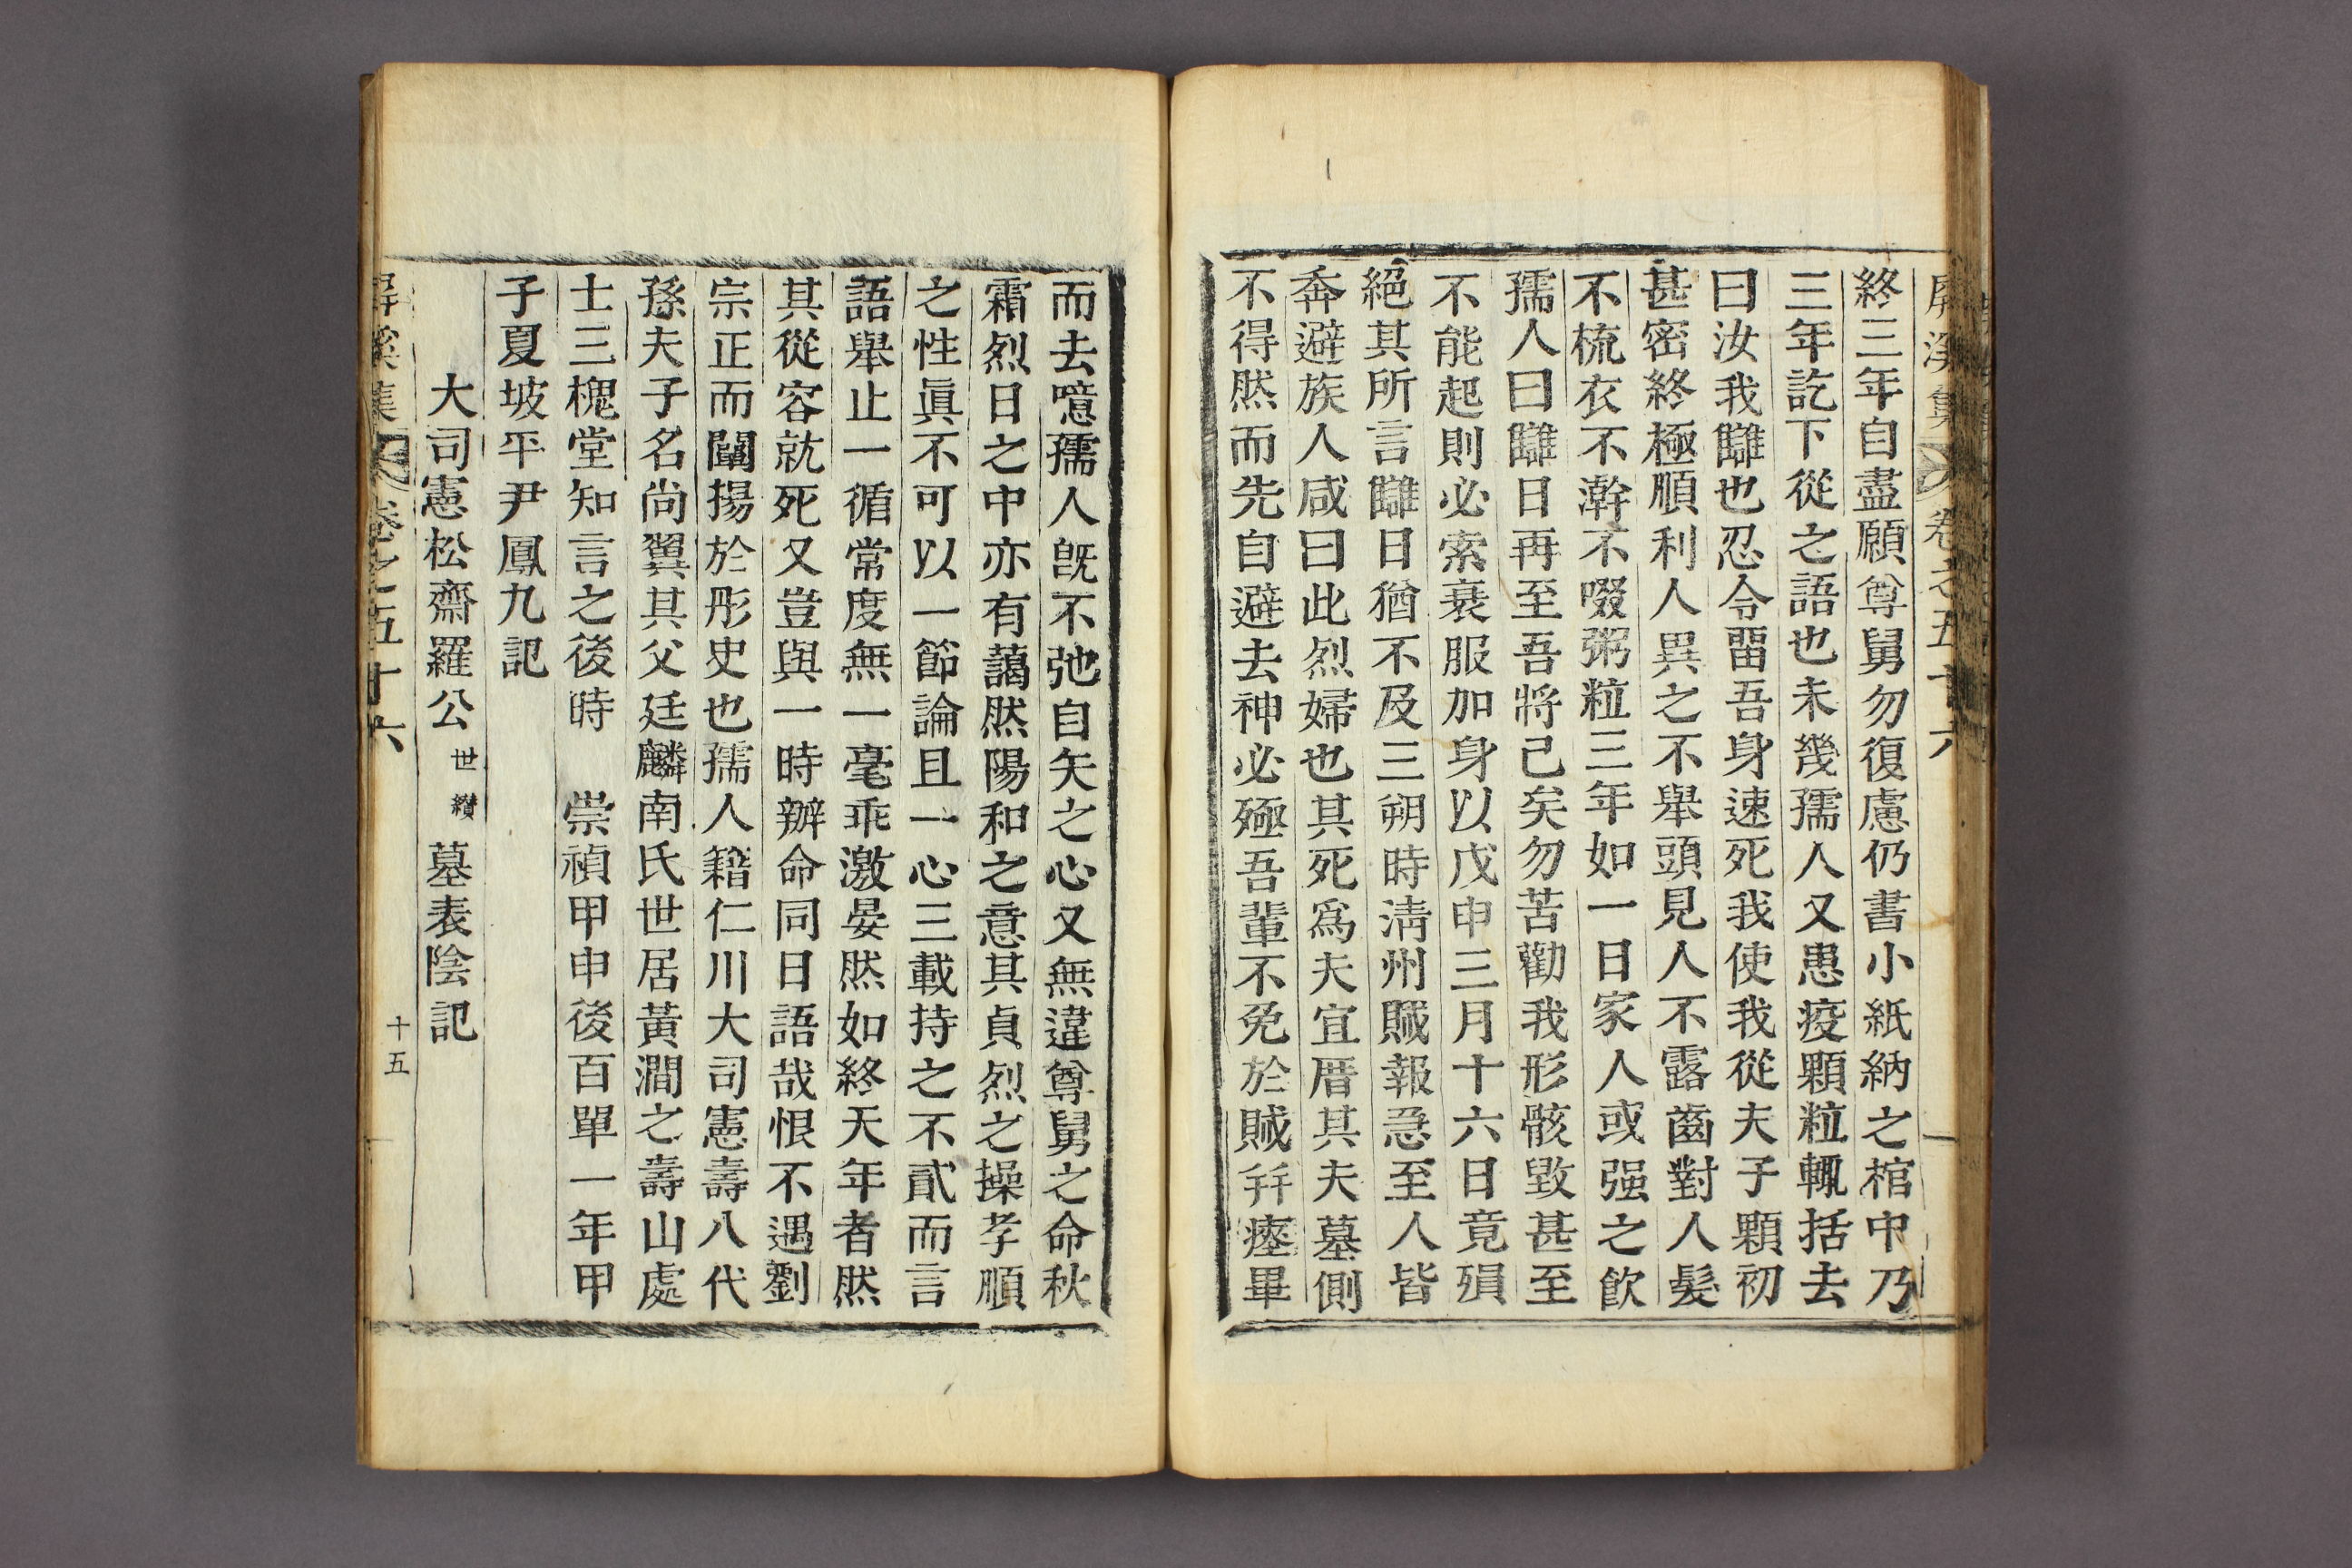 屏溪集 卷之五十六
終三年自盡願尊舅勿復慮仍書小紙納之棺中乃
三年訖下從之語也未幾孺人又患疫顆粒輒括去
曰汝我讎也忍令畱吾身速死我使我從夫子顆初
甚密終極順利人異之不舉頭見人不露齒對人髮
不梳衣不澣不啜粥粒三年如一日家人或强之飮
孺人曰讎日再至吾將已矣勿苦勸我形骸毀甚至
不能起則必索衰服加身以戊申三月十六日竟殞
絕其所言讎日猶不及三朔時淸州賊報急至人皆
奔避族人咸曰此烈婦也其死爲夫宜厝其夫墓側
不得然而先自避去神必殛吾輩不免於賊幷瘞畢
而去噫孺人旣不弛自矢之心又無違尊舅之命秋
霜烈日之中亦有藹然陽和之意其貞烈之操孝順
之性眞不可以一節論且一心三載持之不貳而言
語舉止一循常度無一毫乖激晏然如終天年者然
其從容就死又豈與一時辦命同日語哉恨不遇劉
宗正而闡揚於彤史也孺人籍仁川大司憲壽八代
孫夫子名尚翼其父廷麟南氏世居黃澗之壽山處
士三槐堂知言之後時 崇禎甲申後百單一年甲
子夏坡平尹鳳九記
大司憲松齋羅公世纘墓表陰記
屏溪集 卷之五十六 十五